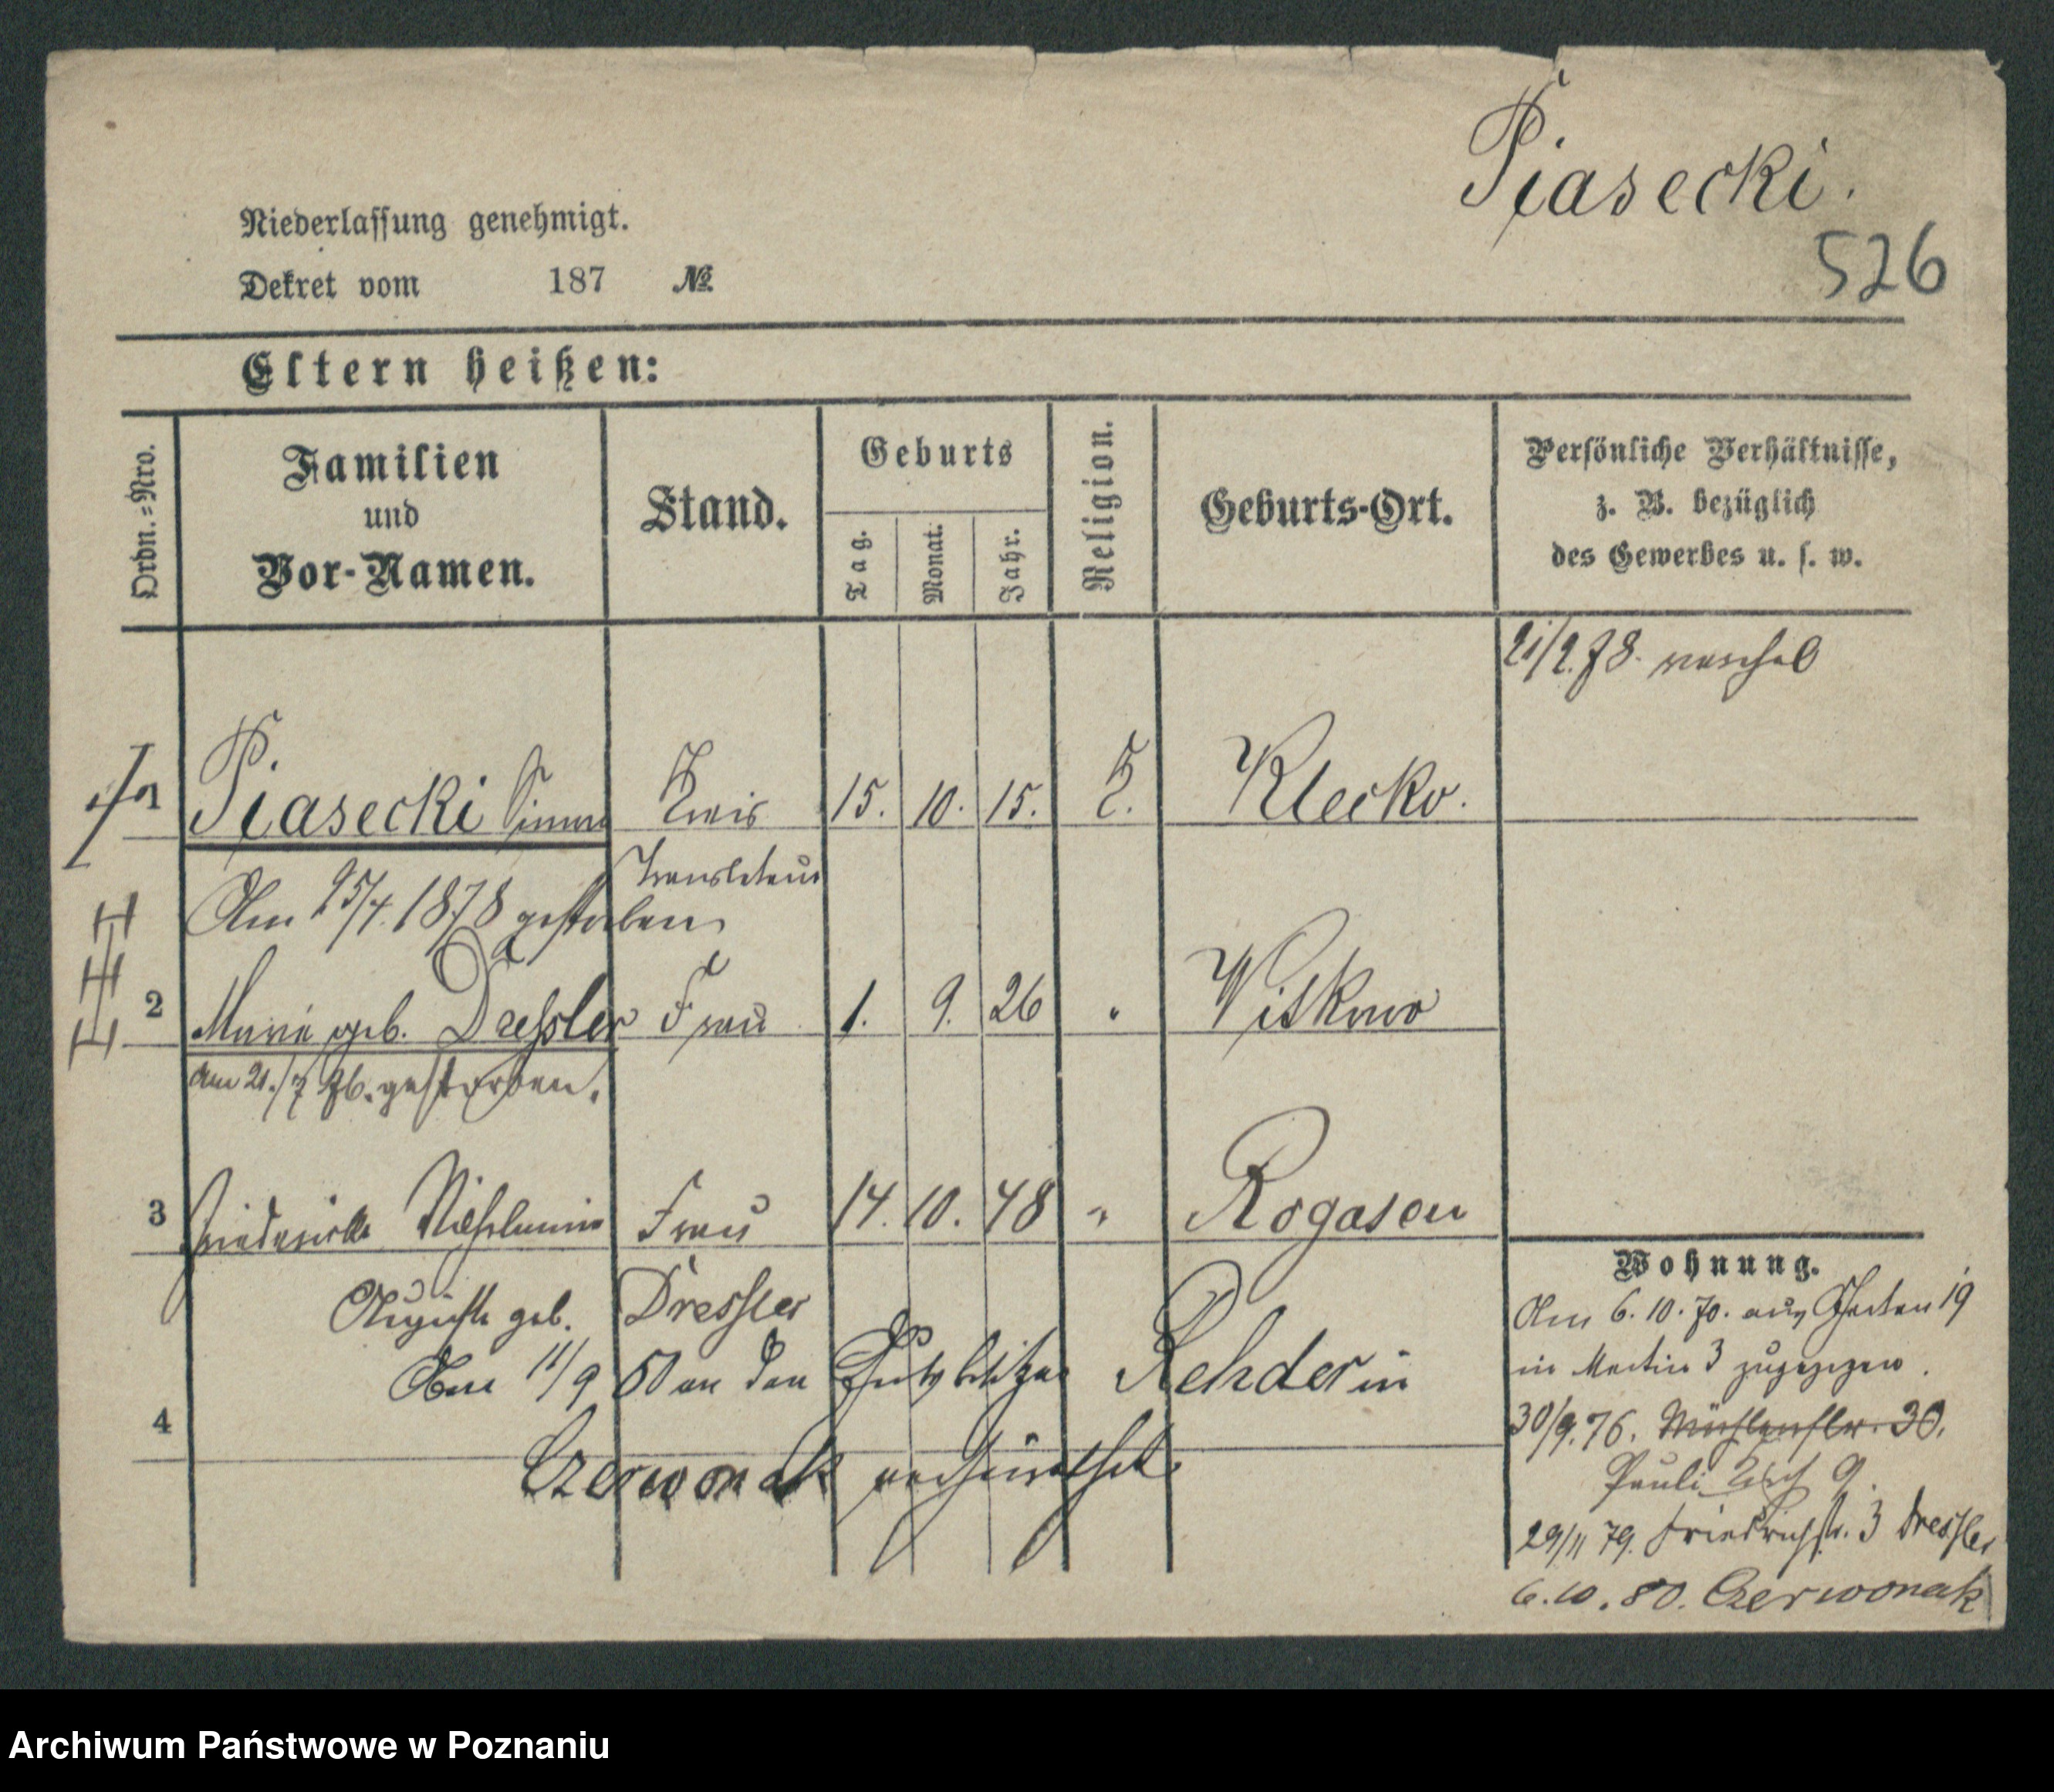 Piasecki.
526
Niederlassung genehmigt.
Dekret vom 187 №
Eltern heißen:
Ordn.=Nro.
Familien
und
Vor-Namen.
Stand.
Geburts
Tag.
Monat.
Jahr.
Religion.
Geburts-Ort.
Persönliche Verhältnisse,
z. B. bezüglich
des Gewerbes u. s. w.
21/2. 78.
Piasecki Kreis 15. 10. 15. K. Klecko.
Translateur
Am 25/4. 1878 gestorben
2 Marie geb. Dressler Frau 1. 9. 26 " Witkowo
am 21./7 76. gestorben.
3 Friederike Wilhelmine Frau 14. 10. 48 " Rogasen
Auguste geb. Dressler
11/9 80 an den Gutsbesitzer Rehder in
4
Czerwonak verheirathet.
Wohnung.
Am 6. 10. 70. aus Garten 19
in Martin 3 zugezogen.
30/9. 76. Mühlenstr. 30.
Pauli Kirch 9.
29/11 79. Friedrichstr. 3 Dressler
6. 10. 80. Czerwonak
Archiwum Państwowe w Poznaniu